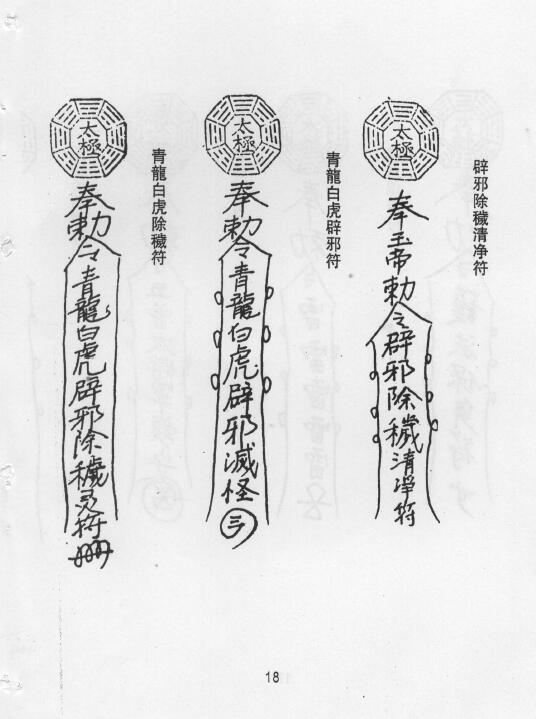 辟邪除穢清净符
太極
奉玉帝勅令辟邪除穢清淨符
青龍白虎辟邪符
太極
奉勅令青龍白虎辟邪滅怪
青龍白虎除穢符
太極
奉勅令青龍白虎辟邪除穢灵符
18